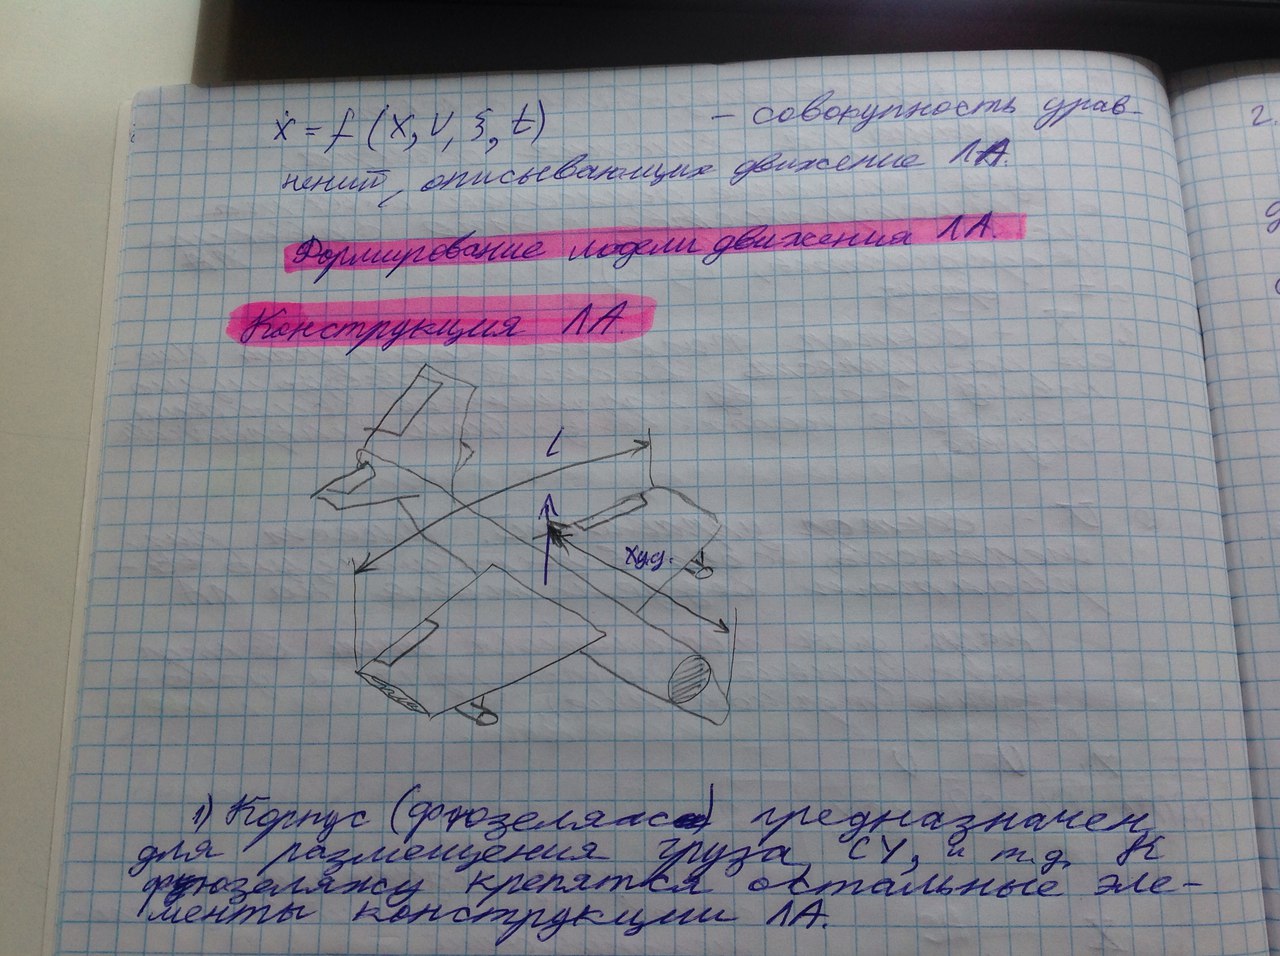 ẋ = f (x, U, ξ, t) – совокупность урав-
нений, описывающих движение ЛА.
Формирование модели движения ЛА.
Конструкция ЛА.
L
1) Корпус (фюзеляж) предназначен
для размещения груза, СУ, и т.д. К
фюзеляжу крепятся остальные эле-
менты конструкции ЛА.
2.